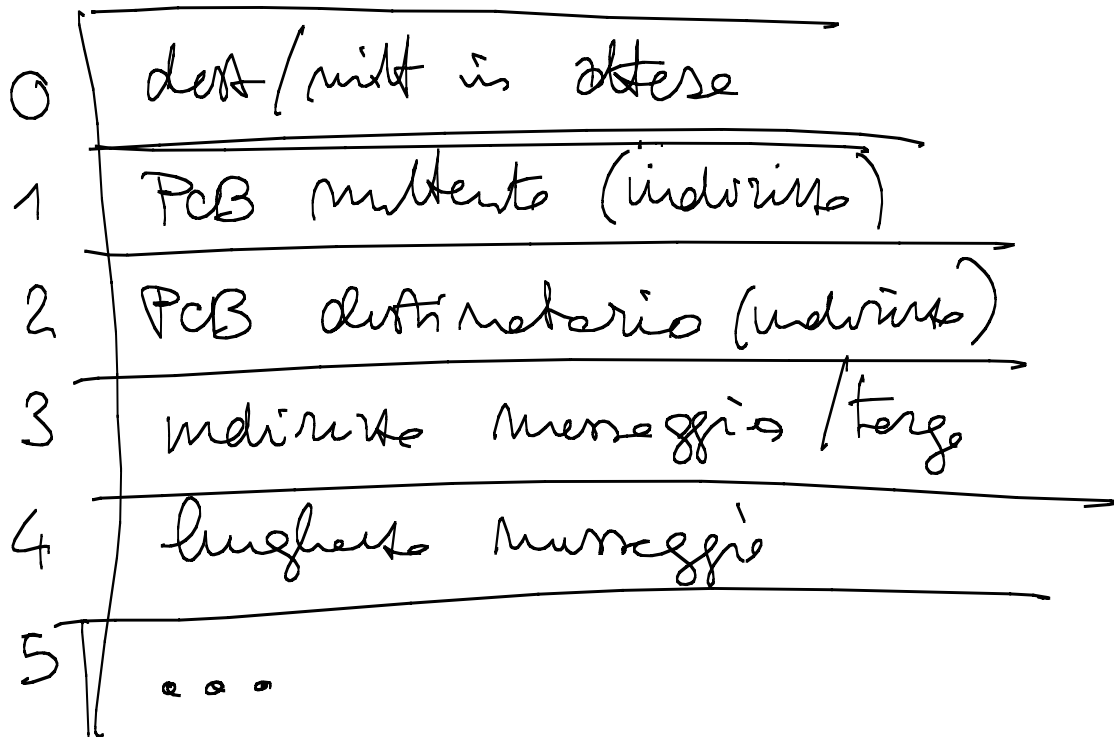 0 dest/mitt in attesa
1 PCB mittente (indirizzo)
2 PCB destinatario (indirizzo)
3 indirizzo messaggio/targ
4 lunghezza messaggi
5 ...